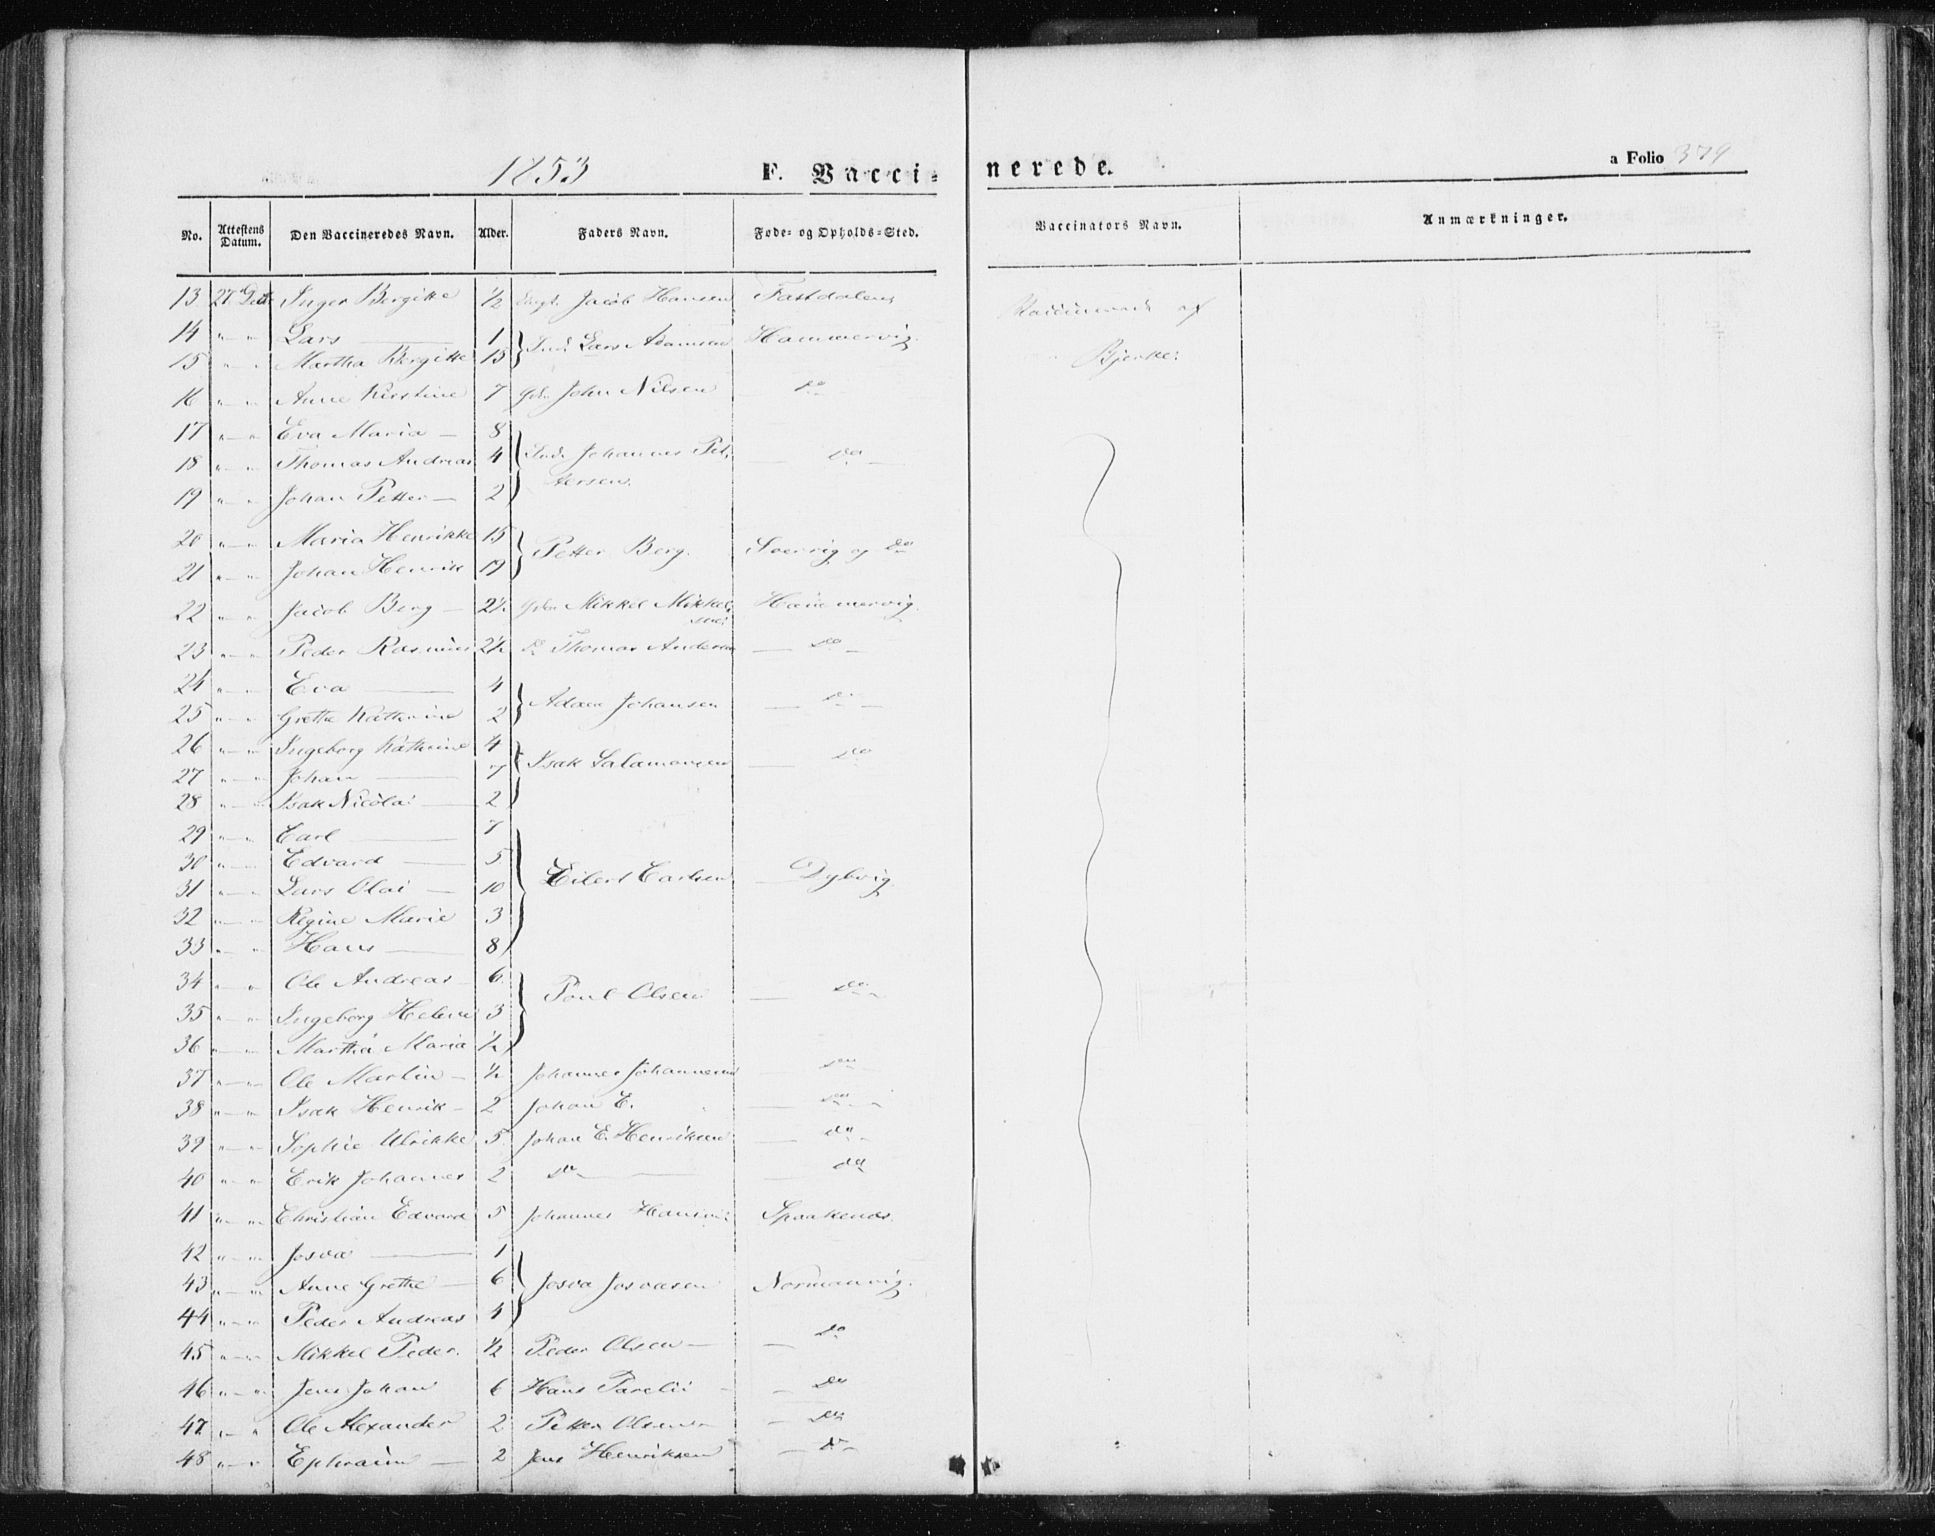 1853 F. Vaccinerede. a Folio 379
No. Attestens Datum. Den Vaccineredes Navn. Alder. Faders Navn. Føde- og Opholds-Sted. Vaccinators Navn. Anmærkninger.
13 27 Inger Bergitte ½ Jacob Hansen Fastdalen af
14 " " Lars 1 Lars Adamsen Hammervig.
15 " " Martha Bergitte 15 Bjerke
16 " " Anne Kirstine 7 John Nilsen do
17 " " Eva Maria 8
18 " " Thomas Andreas 4 Johannes Pet- do
19 " " Johan Petter 2 tersen
20 " " Maria Henrikke 15 Petter Berg. og do
21 " " Johan Henrik 19
22 " " Jacob Berg 2½ Mikkel Mikkel- Hammervig.
sen
23 " " Peder Rasmus 2½ do Thomas Andersen do
24 " " Eva 4 Adam Johansen do
25 " " Grethe Kathrine 2
26 " " Ingeborg Kathrine 4 Isak Salamonsen do
27 " " Johan 7
28 " " Isak Nicolai 2
29 " " Carl 7
30 " " Edvard 5 Eilert Carlsen Dybvig
31 " " Lars Olai 10
32 " " Regine Marie 3
33 " " Hans 8
34 " " Ole Andreas 6 Poul Olsen do
35 " " Ingeborg Helene 3
36 " " Martha Maria ½
37 " " Ole Martin ½ Johannes Johannesen do
38 " " Isak Henrik 2 Johan E. do
39 " " Sophie Ulrikke 5 Johan E. Henriksen do
40 " " Erik Johannes 2 do do
41 " " Christian Edvard 5 Johannes Hansen Spaakenæs
42 " " Josva 1
43 " " Anne Grethe 6 Josva Josvasen Normanvig.
44 " " Peder Andreas 4
45 " " Mikkel Peder. ½ Peder Olsen do
46 " " Jens Johan 6 Hans Parelii do
47 " " Ole Alexander 2 Petter Olsen do
48 " " Ephraim 2 Jens Henriksen do